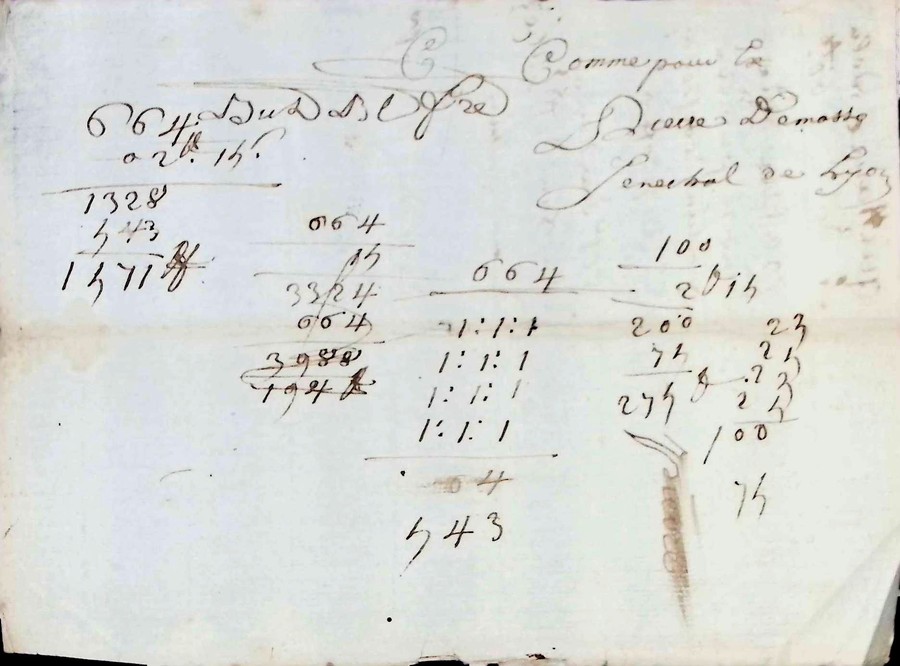 Comme pour la
Pierre Demasso
Senechal de Lyon
664
02tt 15s
1328
543
1571tt
664
15
3324
664
3988
194tt
664
1:1:1
1:1:1
1:1:1
1:1:1
04
543
100
2tt 15
200
75
275tt
25
25
25
25
100
75